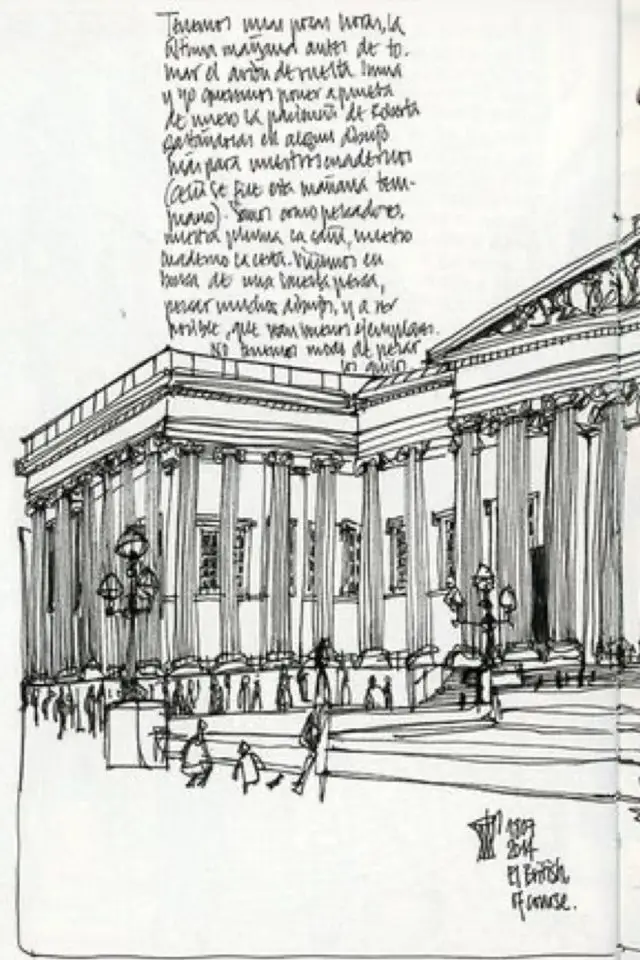 Tenemos unas pocas horas, la
última mañana antes de to-
mar el avión de vuelta. Inma
y yo queremos poner a prueba
de nuevo la paciencia de Roberta
gastándolas en algún dibujo
más para nuestros cuadernos
(Celia se fue esta mañana tem-
prano). Somos como pescadores,
nuestra pluma la caña, nuestro
cuaderno la cesta. Vinimos en
busca de una buena pesca,
pescar muchos dibujos, y a ser
posible, que sean buenos ejemplares.
No tenemos modo de pesar
los
2014
El British,
of course.